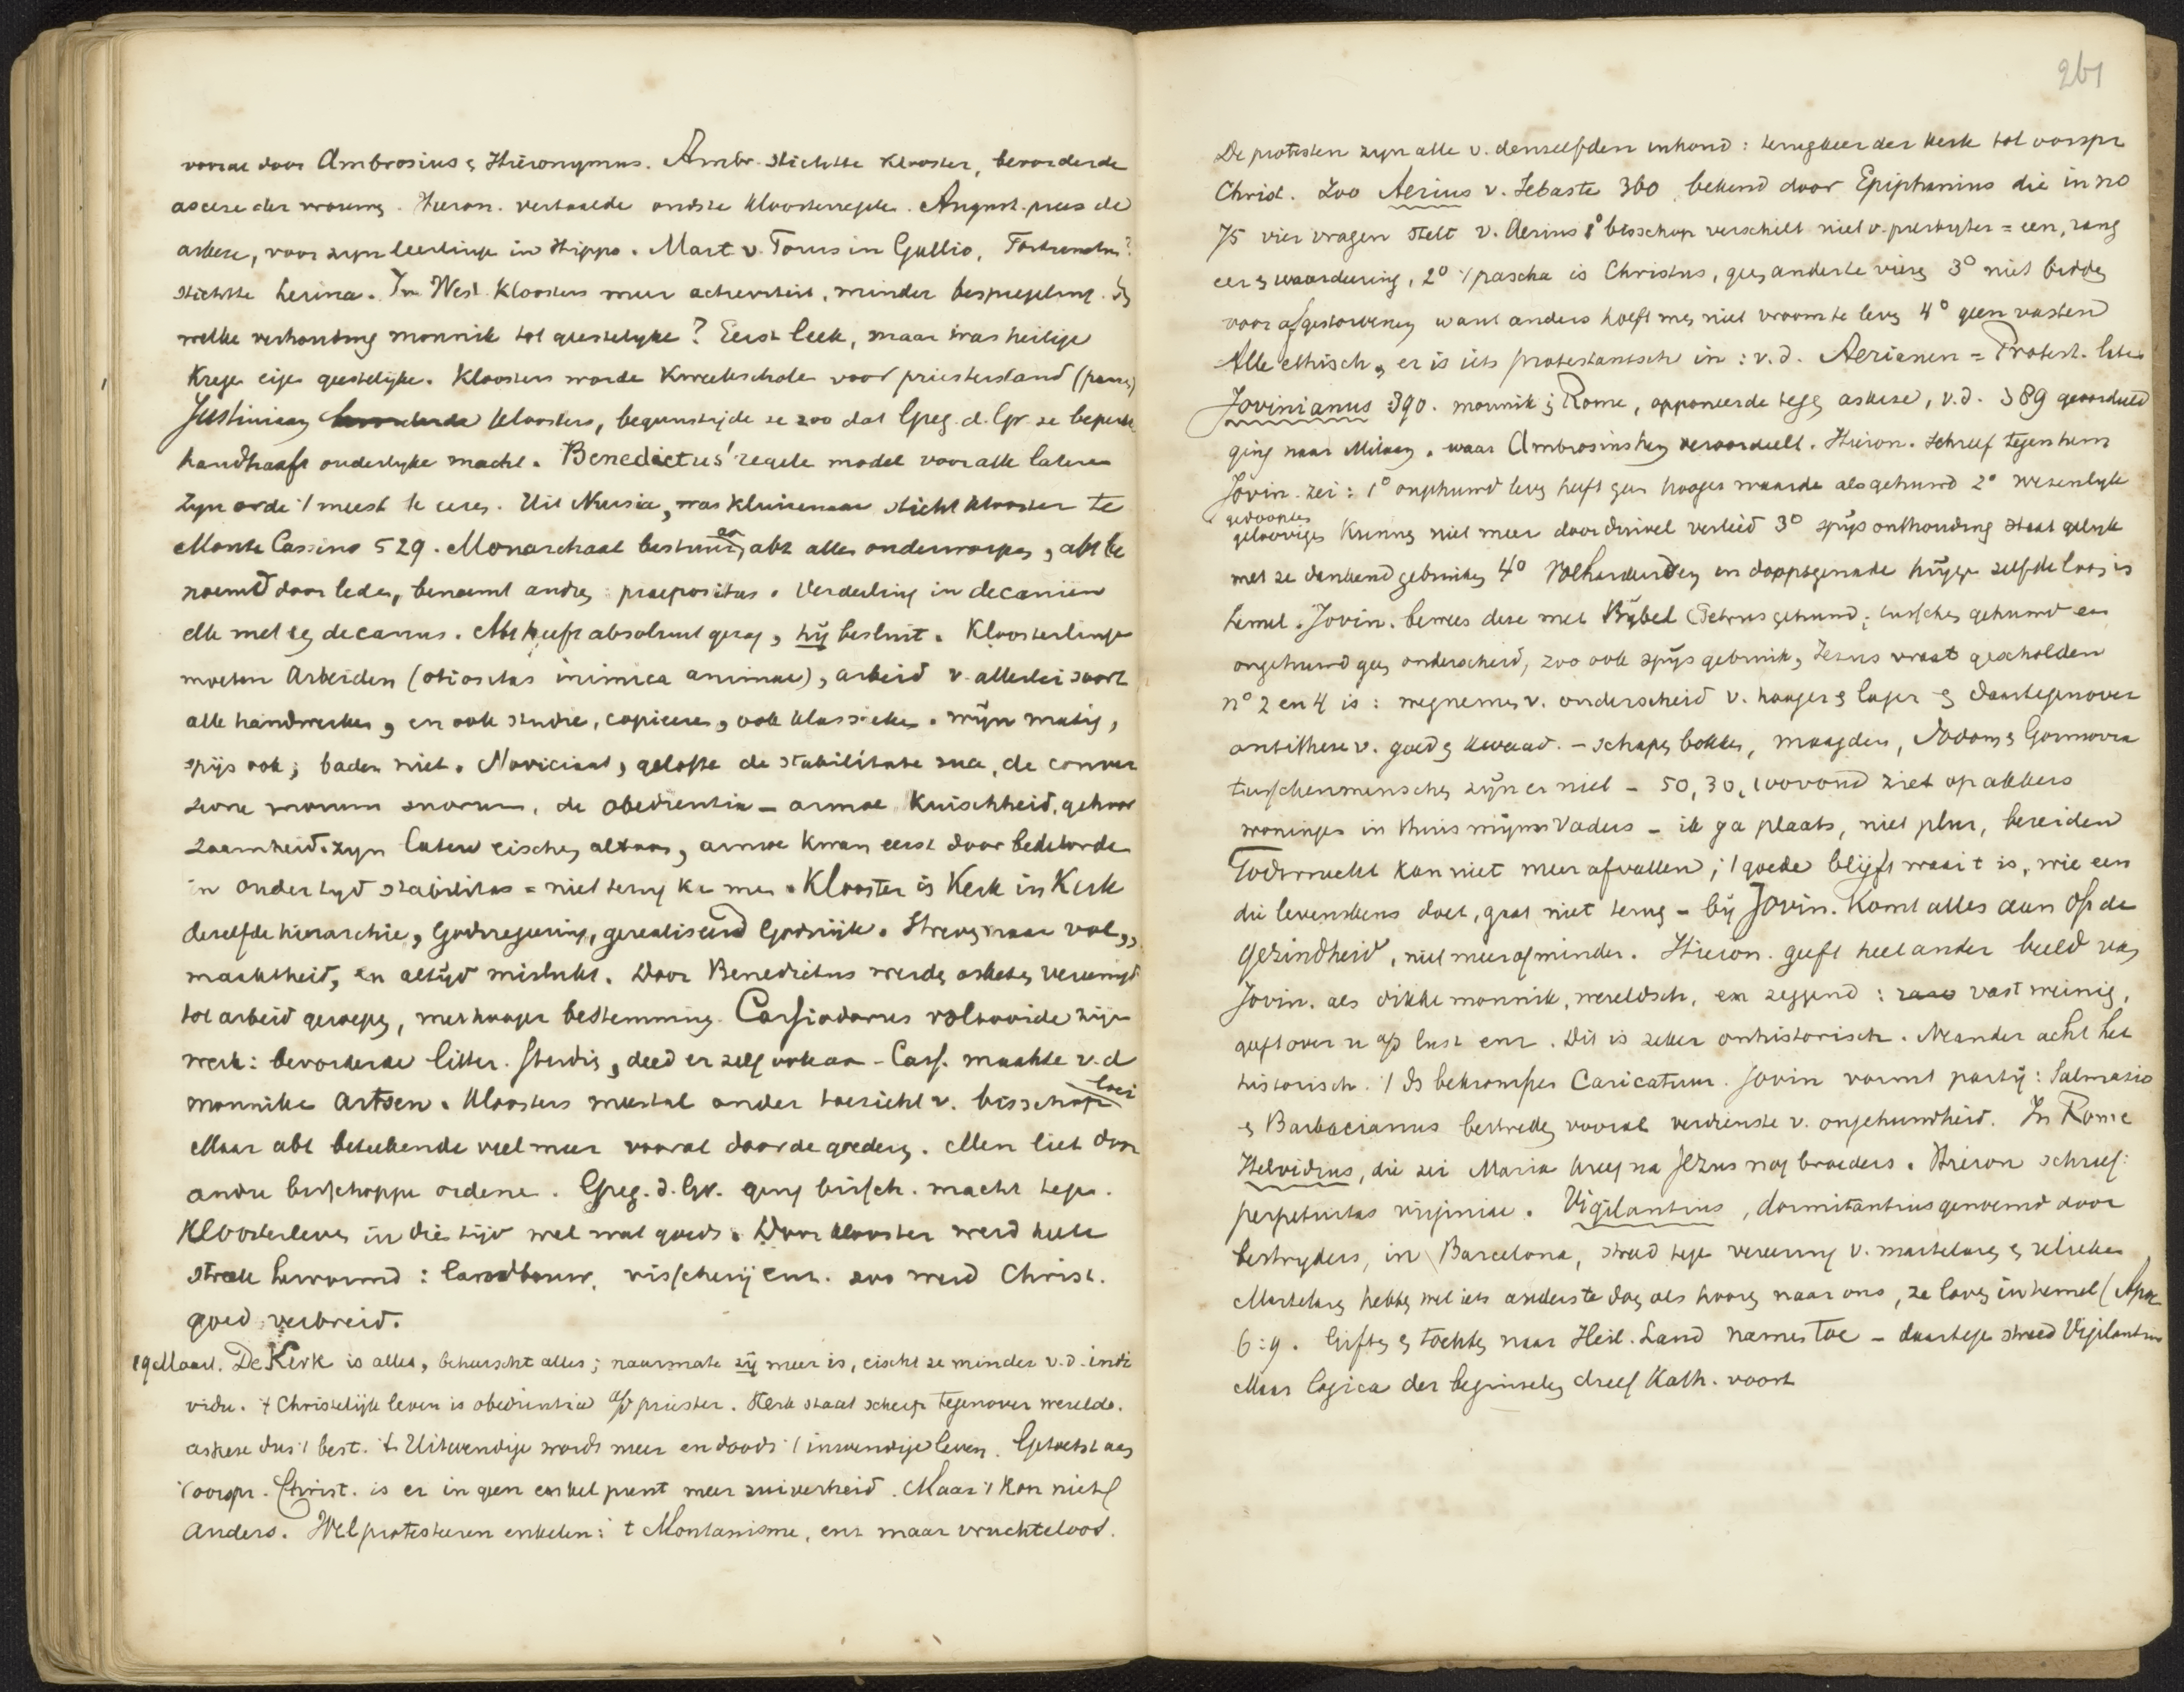 vooral door Ambrosius & Hiëronymus. Ambr. stichtte klooster, bevorderde
ascese der vrouwen. Hieron. vertaalde oudste kloosterregels. August. prees de
askese, voor zyn leerlinge in Hippo. Mart v. Tours in Gallio,
stichtte Lerina. In West. kloosters meer activiteit, minder bespiegeling. In
welke verhouding monnik tot geestelyke? Eerst leek, maar was heilige
krege eige geestelijke. Kloosters worde kweekschole voor priesterstand
Justiniaan kloosters, begunstigde ze zoo dat Greg. d. Gr. ze beperkte
handhaaft ouderlyke macht. Benedictus' regels model voor alle latere
Zyn orde 't meest te eeren. Uit Nursia, was kluizenaar sticht klooster te
Monte Cassino 529. Monarchaal bestuur, en abt alles onderworpen, abt be
noemd door leden, benoemt andren: praepositus. Verdeeling in decaniën
elk met een decanus. Abt heeft absoluut gezag, hij besluit. Kloosterlinge
moeten Arbeiden (otiositas inimica animae), arbeid v. allerlei soort
alle handwerken, en ook studie, copieeren, ook klassieken. wijn matig,
spijs ook; baden niet. Noviciaat, gelofte de stabilitate sua, de conver
sione morum suorum, de obedientia – armoe kuischheid, gehoor
zaamheid. zyn latere eischen althans, armoe kwam eerst door bedelorde
in ouder tyd stabilitas = niet terug kunnen. Klooster is Kerk in Kerk
dezelfde hierarchie, Godsregeering, gerealiseerd Godsrijk. Streven naar vol,,
maaktheid, en altijd mislukt. Door Benedictus werden asketen vereenigd
tot arbeid geroepen, met hooger bestemming. Cassiodorus voltooide zijn
werk: bevorderde litter. studie, deed er zelf ook aan – Cass. maakte v.d
monnike artsen. Kloosters meestal onder toezicht v. bisschop
Maar abt beteekende veel meer vooral door de goederen. Men liet door
andre bisschoppe ordene. Greg. d. Gr. ging bisch. macht tege.
Kloosterleven in die tijd wel wat goeds. Door klooster werd heele
streek hervormd: landbouw, visscherij enz. zoo werd Christ.
goed verbreid.
19 Maart. De Kerk is alles, beheerscht alles; naarmate zij meer is, eischt ze minder v.d. indi
vidu. 't Christelijk leven is obedientia a/d priester. Kerk staat scherp tegenover wereld.
askese dus 't best. 't Uitwendige wordt meer en doodt 't inwendige leven. Getoetst aan
't oorspr. Christ. is er in geen enkel punt meer zuiverheid. Maar 't kon niet
anders. Wel protesteeren enkelen: 't Montanisme, enz maar vruchteloos.
261
De protesten zyn alle v. denzelfden inhoud: terugkeer der kerk tot oorspr
Christ. Zoo Aerius v. Sebaste 360 bekend door Epiphanius die in no
75 vier vragen stelt v. Aerius 1° bisschop verschilt niet v. presbyter = een, rang
eer & waardeering, 2° 't pascha is Christus, geen anderste viere 3° niet bidden
voor afgestorvenen want anders hoeft men niet vroom te leven 4° geen vasten
Alle ethisch, er is iets protestantsch in: v.d. Aerianen = Protest. later
Jovinianus 390. monnik in Rome, opponeerde tegen askese, v.d. 389 geoordeeld
ging naar Milaan. waar Ambrosius hem veroordeelt. Hieron. schreef tegen hem
Jovin. zei: 1° ongehuwd leven heeft geen hooger waarde als gehuwd 2° wezenlyk
gedoopten
geloovigen kunnen niet meer door duivel verleid 3° spijs onthouding staat gelijk
met ze dankend gebruiken 4° Volhardenden in doopsgenade krijge zelfde loon in
hemel. Jovin. bewees deze met Bijbel (Petrus gehuwd, tusschen gehuwd en
ongehuwd geen onderscheid, zoo ook spijs gebruik, Jezus vraat gescholden
n° 2 en 4 is: wegnemen v. onderscheid v. hooger & lager & daartegenover
antithese v. goed & kwaad. – schapen bokken, maagden, Sodom & Gomorra
tusschenmenschen zijn er niet – 50, 30, 100voud ziet op akkers
woningen in Huis mijns Vaders – ik ga plaats, niet plur, bereiden
Godsvrucht kan niet meer afvallen; 't goede blijft waar 't is, wie een
die levenskeus doet, gaat niet terug – bij Jovin. komt alles aan op de
gezindheid, niet meer of minder. Hieron. geeft heel ander beeld van
Jovin. als dikke monnik, wereldsch, en zeggend: vast weinig,
geeft over u op lust enz. Dit is zeker onhistorisch. Neander acht het
historisch. 't Is bekrompen Caricatuur. Jovin vormt partij: Salmatio
& Barbacianus bestreden vooral verdienste v. ongehuwdheid. In Rome
Helvidius, die zei Maria kreeg na Jezus nog broeders. Hieron schreef:
perpetuitas virginiae. Vigilantius, dormitantius genoemd door
bestryders, in Barcelona, streed tege vereering v. martelaren & relieken
Martelaren hebben wel iets anders te doen als hooren naar ons, ze loven in hemel (Apoc
6:9. Giften & tochten naar Heil. Land namen toe – daartege streed Vigilantius
Maar logica der beginselen dreef Kath. voort